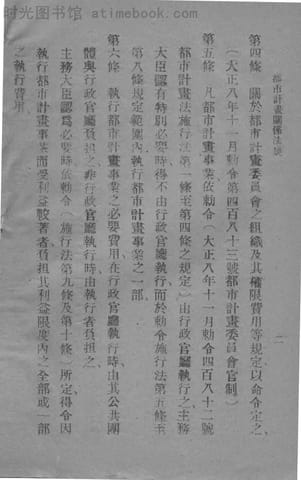 时光图书馆 - atimebook.com
都市計畫關係法規
二
第四條　關於都市計畫委員會之組織及其權限費用等規定以命令定之、
（大正八年十一月勅令第四百八十三號都市計畫委員會官制）
第五條　凡都市計畫事業依勅令（大正八年十一月勅令四百八十二號
都市計畫法施行法第一條至第四條之規定）由行政官廳執行之主務
大臣認有特別必要時得不由行政官廳執行而於勅令施行法第五條至
第八條規定範圍內執行都市計畫事業之一部、
第六條　執行都市計畫事業之必要費用、在行政官廳執行時由其公共團
體與行政官廳負担之非行政官廳執行時由執行者負担之、
主務大臣認爲必要時依勅令（施行法第九條及第十條）所定、得令因
執行都市計畫事業而受利益較著者、負担其利益限度內之全部或一部
之執行費用、
时光图书馆 - atimebook.com